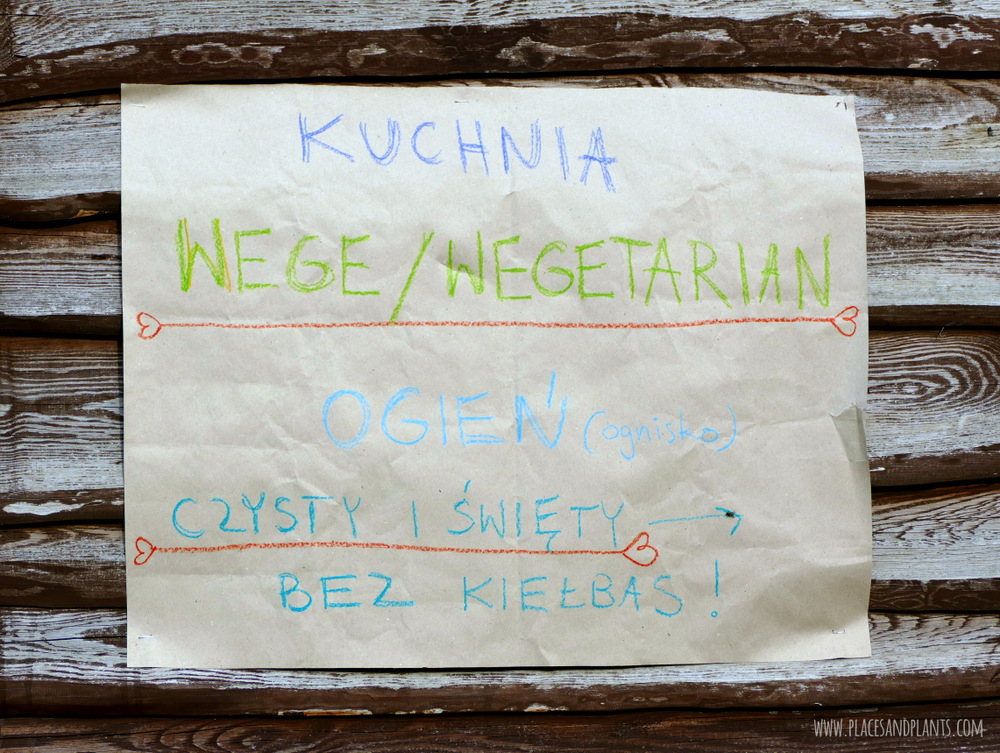 KUCHNIA
WEGE/WEGETARIAN
OGIEŃ (ognisko)
CZYSTY I ŚWIĘTY →
BEZ KIEŁBAS!
WWW.PLACESANDPLANTS.COM